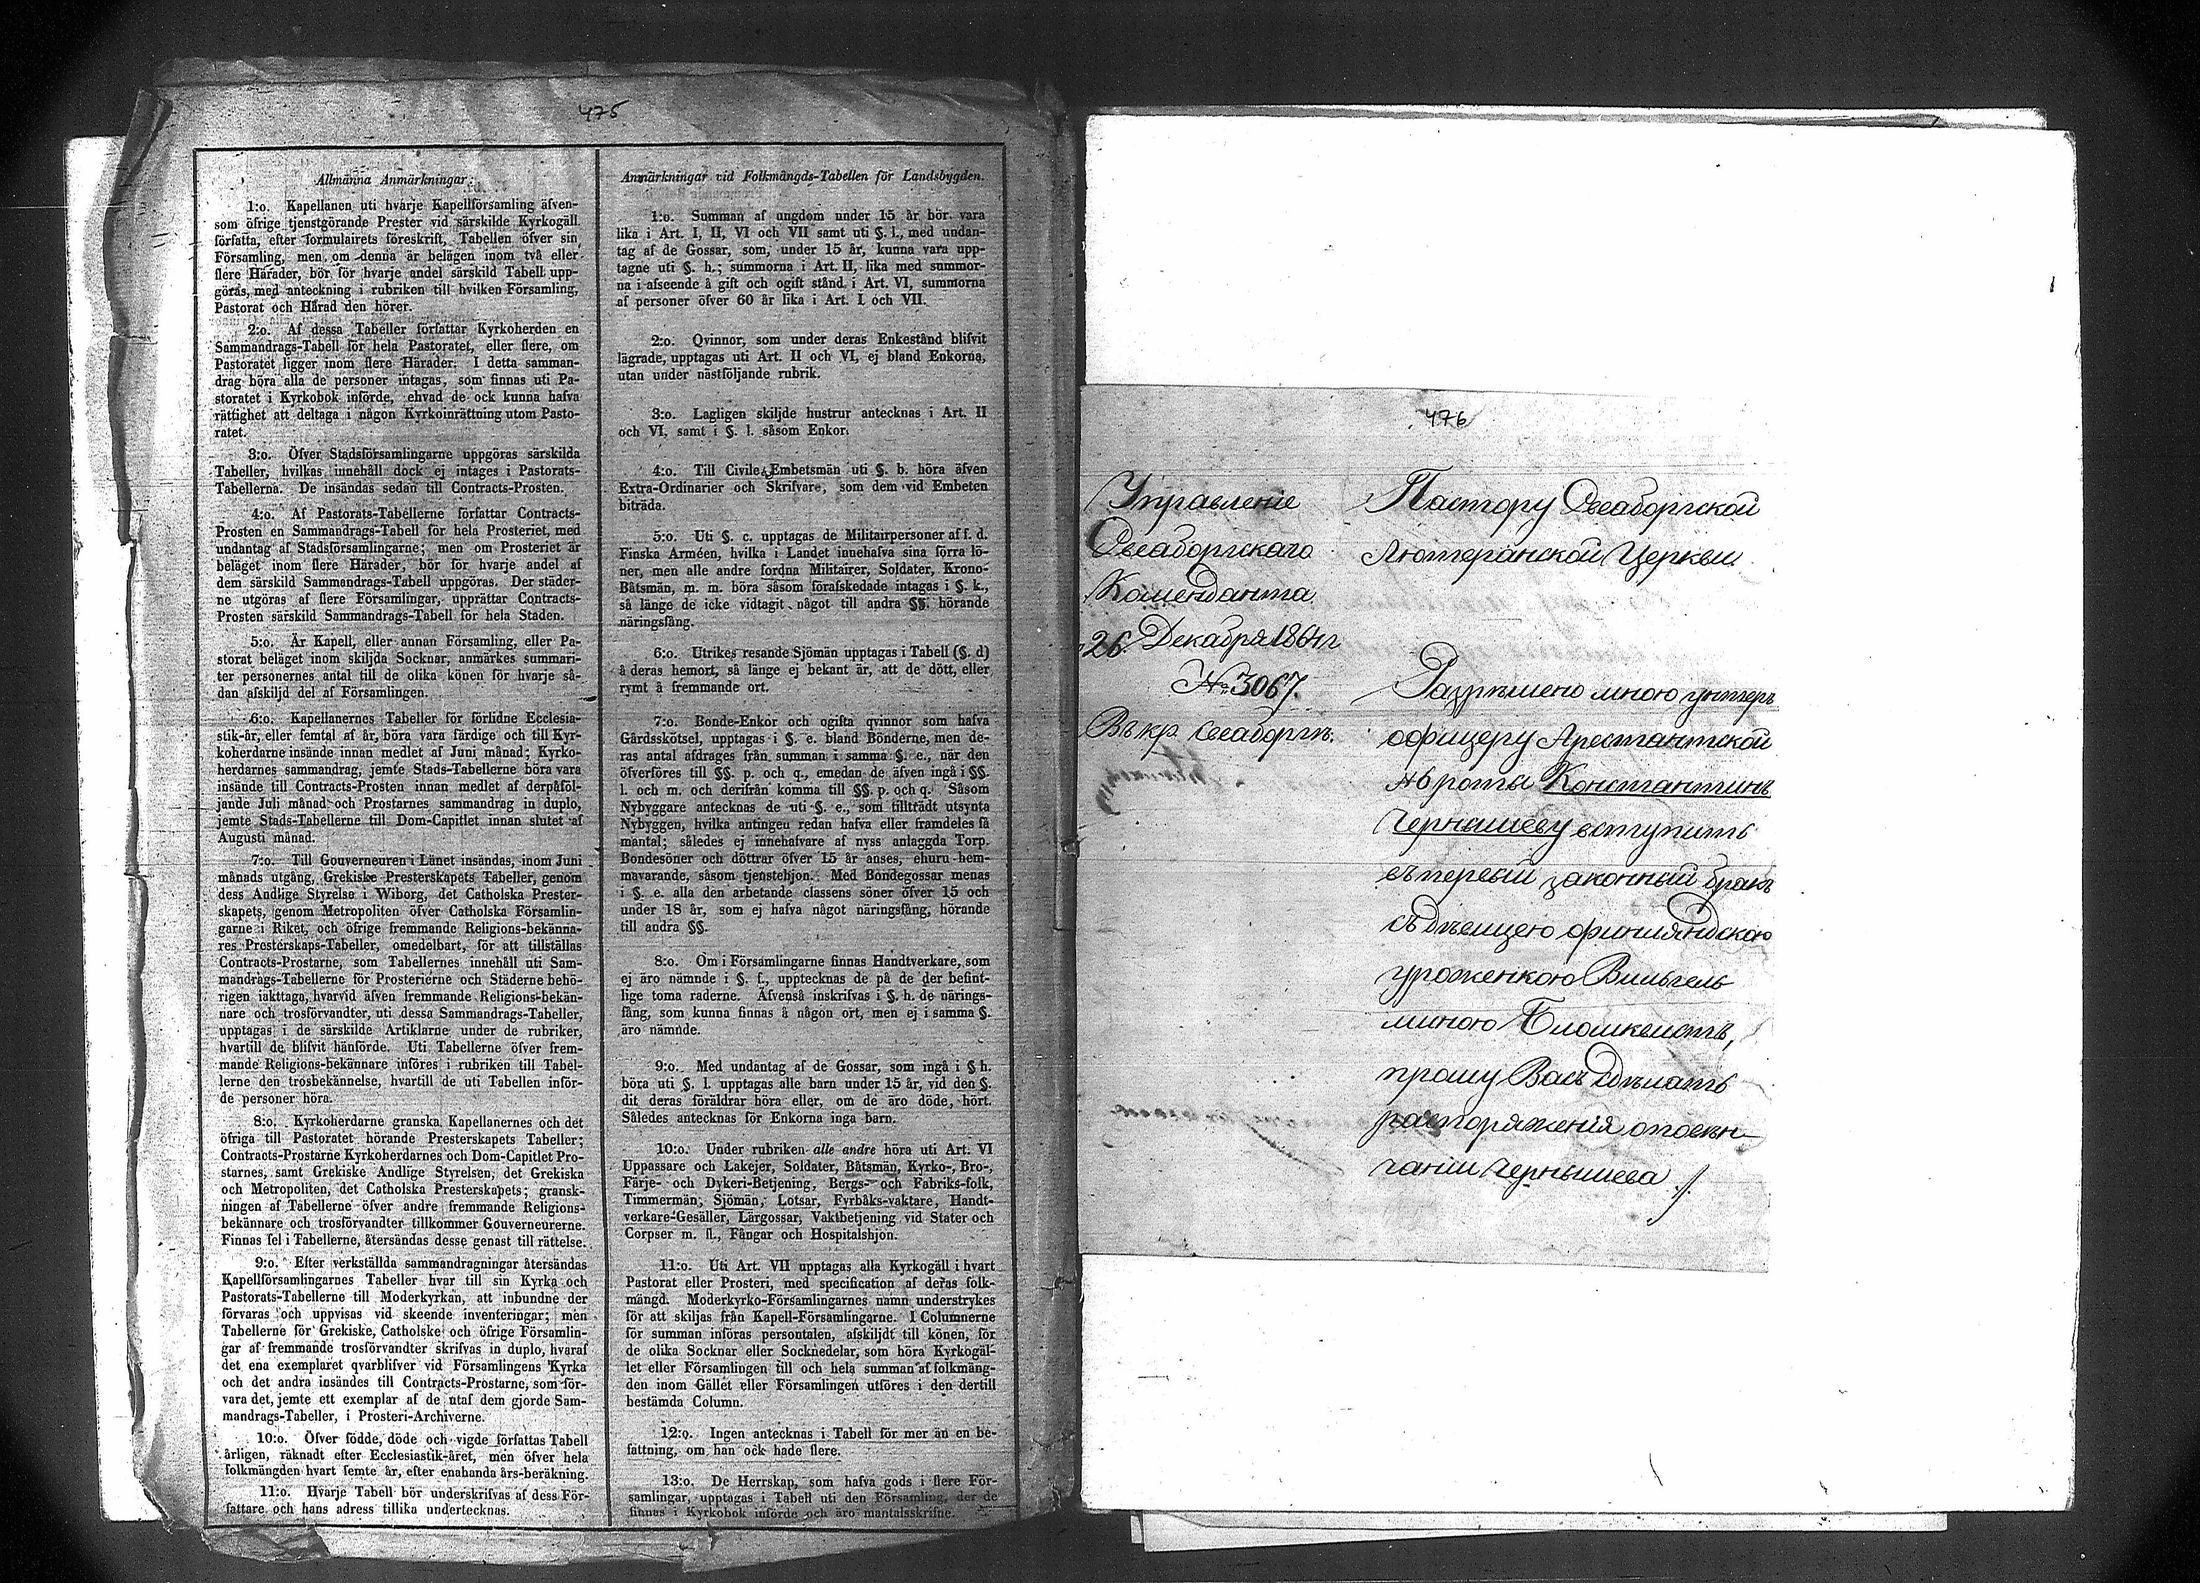 475
Allmänna Anmärkningar:
1:o. Kapellanen uti hvarje Kapellförsamling äfven-
som öfrige tjenstgörande Prester vid särskilde Kyrkogäll
författa, efter formulairets föreskrift, Tabellen öfver sin
Församling, men om denna är belägen inom två eller
flere Härader, bör för hvarje andel särskild Tabell upp-
göras, med anteckning i rubriken till hvilken Församling,
Pastorat och Härad den hörer.
2:o. Af dessa Tabeller författar Kyrkoherden en
Sammandrags-Tabell för hela Pastoratet, eller flere, om
Pastoratet ligger inom flere Härader. I detta samman-
drag böra alla de personer intagas, som finnas uti Pa-
storatet i Kyrkobok införde, ehvad de ock kunna hafva
rättighet att deltaga i någon Kyrkoinrättning utom Pasto-
ratet.
3:o. Öfver Stadsförsamlingarne uppgöras särskilda
Tabeller, hvilkas innehåll dock ej intages i Pastorats-
Tabellerna. De insändas sedan till Contracts-Prosten.
4:o. Af Pastorats-Tabellerne författar Contracts-
Prosten en Sammandrags-Tabell för hela Prosteriet, med
undantag af Stadsförsamlingarne; men om Prosteriet är
beläget inom flere Härader, bör för hvarje andel af
dem särskild Sammandrags-Tabell uppgöras. Der städer-
ne utgöras af flere Församlingar, upprättar Contracts-
Prosten särskild Sammandrags-Tabell för hela Staden.
5:o. Är Kapell, eller annan Församling, eller Pa-
storat beläget inom skiljda Socknar, anmärkes summari-
ter personernes antal till de olika könen för hvarje så-
dan afskiljd del af Församlingen.
6:o. Kapellanernes Tabeller för förlidne Ecclesia-
stik-år, eller femtal af år, böra vara färdige och till Kyr-
koherdarne insände innan medlet af Juni månad; Kyrko-
herdarnes sammandrag, jemte Stads-Tabellerne böra vara
insände till Contracts-Prosten innan medlet af derpåföl-
jande Juli månad och Prostarnes sammandrag in duplo,
jemte Stads-Tabellerne till Dom-Capitlet innan slutet af
Augusti månad.
7:o. Till Gouverneuren i Länet insändas, inom Juni
månads utgång, Grekiske Presterskapets Tabeller, genom
dess Andlige Styrelse i Wiborg, det Catholska Prester-
skapets, genom Metropoliten öfver Catholska Församlin-
garne i Riket, och öfrige fremmande Religions-bekänna-
res Presterskaps-Tabeller, omedelbart, för att tillställas
Contracts-Prostarne, som Tabellernes innehåll uti Sam-
mandrags-Tabellerne för Prosterierne och Städerne behö-
rigen iakttaga, hvarvid äfven fremmande Religions-bekän-
nare och trosförvandter, uti dessa Sammandrags-Tabeller,
upptagas i de särskilde Artiklarne under de rubriker,
hvartill de blifvit hänförde. Uti Tabellerne öfver frem-
mande Religions-bekännare införes i rubriken till Tabel-
lerne den trosbekännelse, hvartill de uti Tabellen inför-
de personer höra.
8:o. Kyrkoherdarne granska Kapellanernes och det
öfriga till Pastoratet hörande Presterskapets Tabeller;
Contracts-Prostarne Kyrkoherdarnes och Dom-Capitlet Pro-
starnes, samt Grekiske Andlige Styrelsen, det Grekiska
och Metropoliten, det Catholska Presterskapets; gransk-
ningen af Tabellerne öfver andre fremmande Religions-
bekännare och trosförvandter tillkommer Gouverneurerne.
Finnas fel i Tabellerne, återsändas desse genast till rättelse.
9:o. Efter verkställda sammandragningar återsändas
Kapellförsamlingarnes Tabeller hvar till sin Kyrka och
Pastorats-Tabellerne till Moderkyrkan, att inbundne der
förvaras och uppvisas vid skeende inventeringar; men
Tabellerne för Grekiske, Catholske och öfrige Församlin-
gar af fremmande trosförvandter skrifvas in duplo, hvaraf
det ena exemplaret qvarblifver vid Församlingens Kyrka
och det andra insändes till Contracts-Prostarne, som för-
vara det, jemte ett exemplar af de utaf dem gjorde Sam-
mandrags-Tabeller, i Prosteri-Archiverne.
10:o. Öfver födde, döde och vigde författas Tabell
årligen, räknadt efter Ecclesiastik-året, men öfver hela
folkmängden hvart femte år, efter enahanda års-beräkning.
11:o. Hvarje Tabell bör underskrifvas af dess För-
fattare och hans adress tillika undertecknas.
Anmärkningar vid Folkmängds-Tabellen för Landsbygden.
1:o. Summan af ungdom under 15 år bör vara
lika i Art. I, II, VI och VII samt uti §. l., med undan-
tag af de Gossar, som, under 15 år, kunna vara upp-
tagne uti §. h.; summorna i Art. II, lika med summor-
na i afseende å gift och ogift stånd, i Art. VI, summorna
af personer öfver 60 år lika i Art. I och VII.
2:o. Qvinnor, som under deras Enkestånd blifvit
lägrade, upptagas uti Art. II och VI, ej bland Enkorna,
utan under nästföljande rubrik.
3:o. Lagligen skiljde hustrur antecknas i Art. II
och VI, samt i §. l. såsom Enkor.
4:o. Till Civile Embetsmän uti §. b. höra äfven
Extra-Ordinarier och Skrifvare, som dem vid Embeten
biträda.
5:o. Uti §. c. upptagas de Militairpersoner af f. d.
Finska Arméen, hvilka i Landet innehafva sina förra lö-
ner, men alle andre fordna Militairer, Soldater, Krono-
Båtsmän, m. m. böra såsom förafskedade intagas i §. k.,
så länge de icke vidtagit något till andra §§. hörande
näringsfång.
6:o. Utrikes resande Sjömän upptagas i Tabell (§. d)
å deras hemort, så länge ej bekant är, att de dött, eller
rymt å fremmande ort.
7:o. Bonde-Enkor och ogifta qvinnor som hafva
Gårdsskötsel, upptagas i §. e. bland Bönderne, men de-
ras antal afdrages från summan i samma §. e., när den
öfverföres till §§. p. och q., emedan de äfven ingå i §§.
l. och m. och derifrån komma till §§. p. och q. Såsom
Nybyggare antecknas de uti §. e., som tillträdt utsynta
Nybyggen, hvilka antingen redan hafva eller framdeles få
mantal; således ej innehafvare af nyss anlaggda Torp.
Bondesöner och döttrar öfver 15 år anses, ehuru hem-
mavarande, såsom tjenstehjon. Med Bondegossar menas
i §. e. alla den arbetande classens söner öfver 15 och
under 18 år, som ej hafva något näringsfång, hörande
till andra §§.
8:o. Om i Församlingarne finnas Handtverkare, som
ej äro nämnde i §. f., upptecknas de på de der befint-
lige toma raderne. Äfvenså inskrifvas i §. h. de närings-
fång, som kunna finnas å någon ort, men ej i samma §.
äro nämnde.
9:o. Med undantag af de Gossar, som ingå i § h.
böra uti §. l. upptagas alle barn under 15 år, vid den §.
dit deras föräldrar höra eller, om de äro döde, hört.
Således antecknas för Enkorna inga barn.
10:o. Under rubriken alle andre höra uti Art. VI
Uppassare och Lakejer, Soldater, Båtsmän, Kyrko-, Bro-,
Färje- och Dykeri-Betjening, Bergs- och Fabriks-folk,
Timmermän, Sjömän, Lotsar, Fyrbåks-vaktare, Handt-
verkare-Gesäller, Lärgossar, Vaktbetjening vid Stater och
Corpser m. fl., Fångar och Hospitalshjon.
11:o. Uti Art. VII upptagas alla Kyrkogäll i hvart
Pastorat eller Prosteri, med specification af deras folk-
mängd. Moderkyrko-Församlingarnes namn understrykes
för att skiljas från Kapell-Församlingarne. I Columnerne
för summan införas persontalen, afskiljdt till könen, för
de olika Socknar eller Socknedelar, som höra Kyrkogäl-
let eller Församlingen till och hela summan af folkmäng-
den inom Gället eller Församlingen utföres i den dertill
bestämda Column.
12:o. Ingen antecknas i Tabell för mer än en be-
fattning, om han ock hade flere.
13:o. De Herrskap, som hafva gods i flere För-
samlingar, upptagas i Tabell uti den Församling, der de
finnas i Kyrkobok införde och äro mantalsskrifne.
476
Управленіе
Свеаборгскаго
Коменданта
26 Декабря 1864 г
№ 3067.
Въ кр. Свеаборгъ.
Пастору Свеаборгской
Лютеранской Церкви.
Разрѣшено мною унтеръ
офицеру Арестантской
№ 6 роты Константину
Чернышеву вступить
въ первый законный бракъ
съ дѣвицею финляндскою
уроженкою Вильгель
миною Блошквистъ,
прошу Васъ сдѣлать
распоряженія о повѣн-
чаніи Чернышева